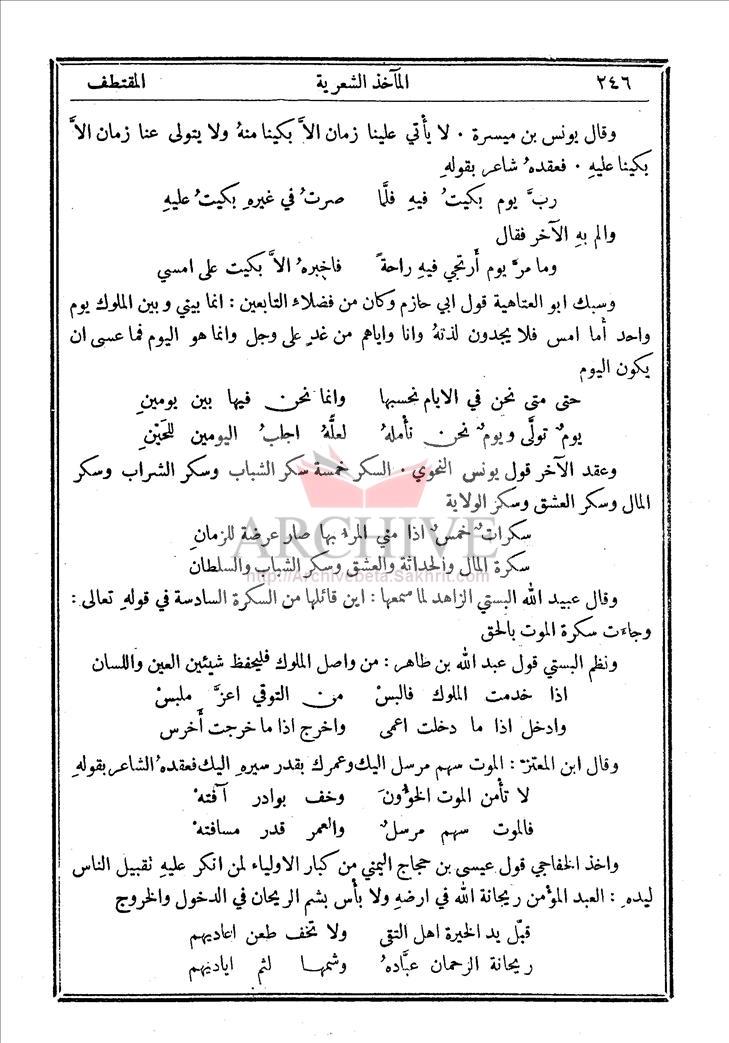 ٢٤٦ المآخذ الشعرية المقتطف
وقال يونس بن ميسرة ٠ لا يأتي علينا زمان الاَّ بكينا منهُ ولا يتولى عنا زمان الاَّ
بكينا عليهِ ٠ فعقدهُ شاعر بقولهِ
ربَّ يوم بكيتُ فيهِ فلَّما صرتُ في غيرهِ بكيتُ عليهِ
والم بهِ الآخر فقال
وما مرَّ يوم أَرتجي فيهِ راحةً فاخبرهُ الاَّ بكيت على امسي
وسبك ابو العتاهية قول ابي حازم وكان من فضلاء التابعين : انما بيني وبين الملوك يوم
واحد أما امس فلا يجدون لذتهُ وانا واياهم من غدٍ على وجل وانما هو اليوم فما عسى ان
يكون اليوم
حتى متى نحن في الايام نحسبها وانما نحن فيها بين يومينِ
يومٌ تولَّى ويومٌ نحن نأملهُ لعلَّهُ اجلبُ اليومين للحَيْنِ
وعقد الآخر قول يونس النحوي ٠ السكر خمسة سكر الشباب وسكر الشراب وسكر
المال وسكر العشق وسكر الولاية
سكراتٌ خمسٌ اذا مني المرءُ بها صار عرضة للزمانِ
سكرة المال والحداثة والعشق وسكر الشباب والسلطان
ARCHIVE
http://Archivebeta.Sakhrit.com
وقال عبيد الله البستي الزاهد لما سمعها : اين قائلها من السكرة السادسة في قولهِ تعالى :
وجاءت سكرة الموت بالحق
ونظم البستي قول عبد الله بن طاهر : من واصل الملوك فليحفظ شيئين العين واللسان
اذا خدمت الملوك فالبسْ من التوقي اعزَّ ملبسْ
وادخل اذا ما دخلت اعمى واخرج اذا ما خرجت أَخرس
وقال ابن المعتزّ : الموت سهم مرسل اليك وعمرك بقدر سيرهِ اليك فعقدهُ الشاعر بقولهِ
لا تأمن الموت الخؤُونَ وخف بوادر آفتهْ
فالموت سهم مرسلٌ والعمر قدر مسافتهْ
واخذ الخفاجي قول عيسى بن حجاج اليمني من كبار الاولياء لمن انكر عليهِ تقبيل الناس
ليدهِ : العبد المؤمن ريحانة الله في ارضهِ ولا بأس بشم الريحان في الدخول والخروج
قبّل يد الخيرة اهل التقى ولا تخف طعن اعاديهم
ريحانة الرحمان عبَّادهُ وشمها لثم اياديهم